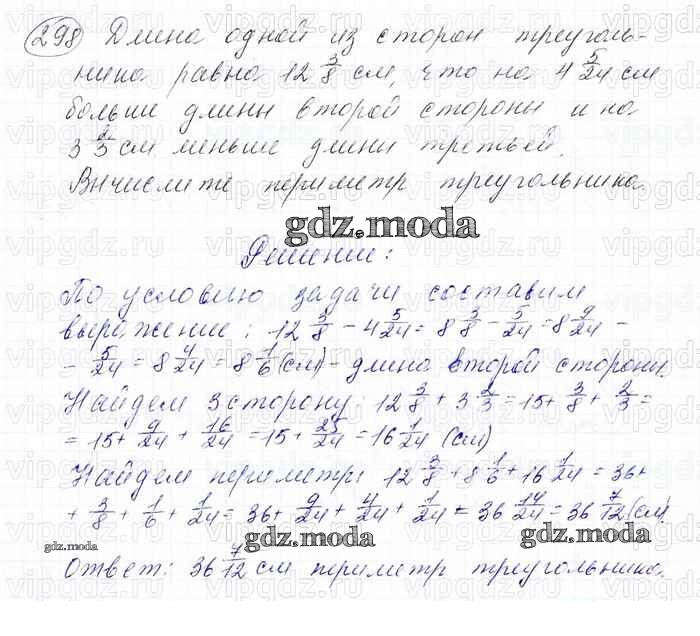 298 Длина одной из сторон треуголь-
ника равна 12 3/8 см, что на 4 5/24 см
больше длины второй стороны и на
3 2/3 см меньше длины третьей.
Вычислите периметр треугольника.
gdz.moda
Решение:
По условию задачи составим
выражение: 12 3/8 - 4 5/24 = 8 3/8 - 5/24 = 8 9/24 -
- 5/24 = 8 4/24 = 8 1/6 (см) - длина второй стороны.
Найдем 3 сторону: 12 3/8 + 3 2/3 = 15 + 3/8 + 2/3 =
= 15 + 9/24 + 16/24 = 15 + 25/24 = 16 1/24 (см)
Найдем периметр: 12 3/8 + 8 1/6 + 16 1/24 = 36 +
+ 3/8 + 1/6 + 1/24 = 36 + 9/24 + 4/24 + 1/24 = 36 14/24 = 36 7/12 (см)
gdz.moda
gdz.moda
Ответ: 36 7/12 см периметр треугольника.